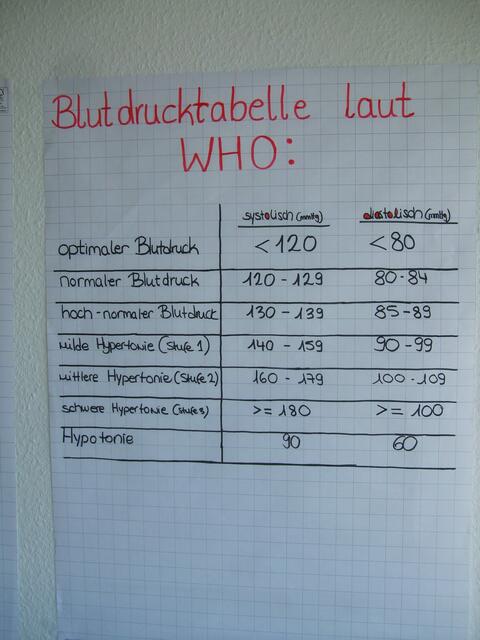 Blutdrucktabelle laut
WHO:
systolisch (mmHg) diastolisch (mmHg)
optimaler Blutdruck <120 <80
normaler Blutdruck 120 - 129 80 - 84
hoch-normaler Blutdruck 130 - 139 85 - 89
milde Hypertonie (Stufe 1) 140 - 159 90 - 99
mittlere Hypertonie (Stufe 2) 160 - 179 100 - 109
schwere Hypertonie (Stufe 3) >= 180 >= 100
Hypotonie 90 60